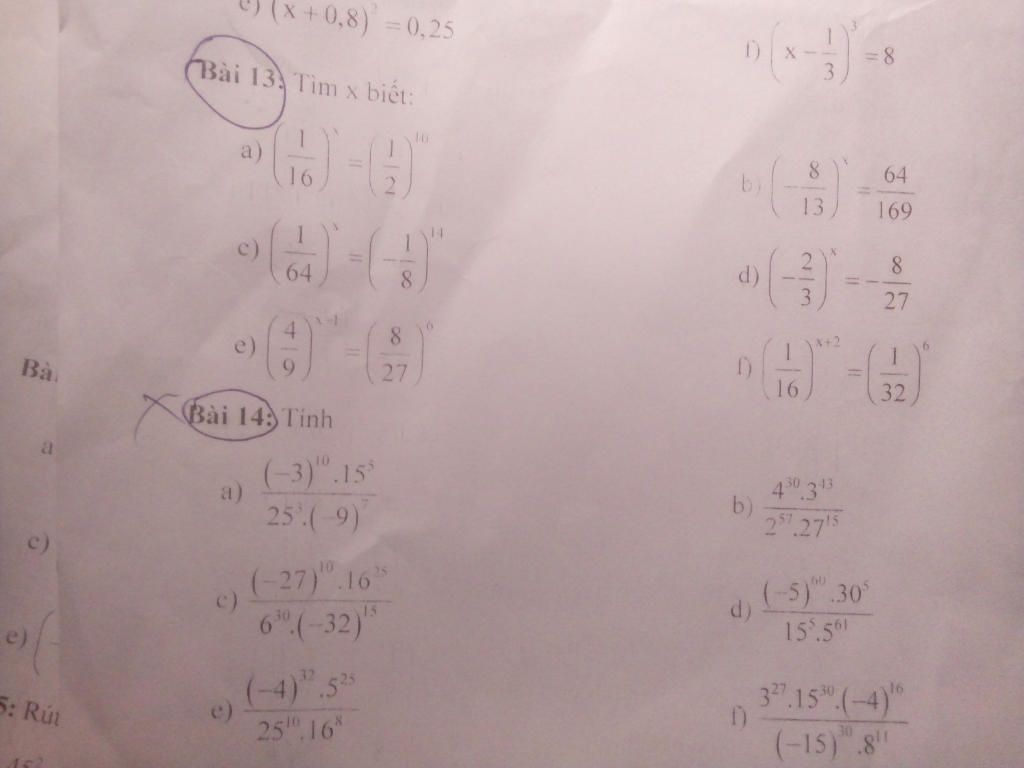 e) (x + 0,8)² = 0,25
f) (x − 1/3)³ = 8
Bài 13: Tìm x biết:
a) (1/16)ˣ = (1/2)¹⁰
b) (−8/13)ˣ = 64/169
c) (1/64)ˣ = (−1/8)¹⁴
d) (−2/3)ˣ = −8/27
e) (4/9) = (8/27)⁶
f) (1/16)ˣ⁺² = (1/32)⁶
Bài 14: Tính
a) (−3)¹⁰.15⁵ / 25³.(−9)⁷
b) 4³⁰.3⁴³ / 2⁵⁷.27¹⁵
c) (−27)¹⁰.16²⁵ / 6³⁰.(−32)¹⁵
d) (−5)⁶⁰.30⁵ / 15⁵.5⁶¹
e) (−4)³².5²⁵ / 25¹⁰.16⁸
f) 3²⁷.15³⁰.(−4)¹⁶ / (−15)³⁰.8¹¹
a
c)
e)
5: Rút